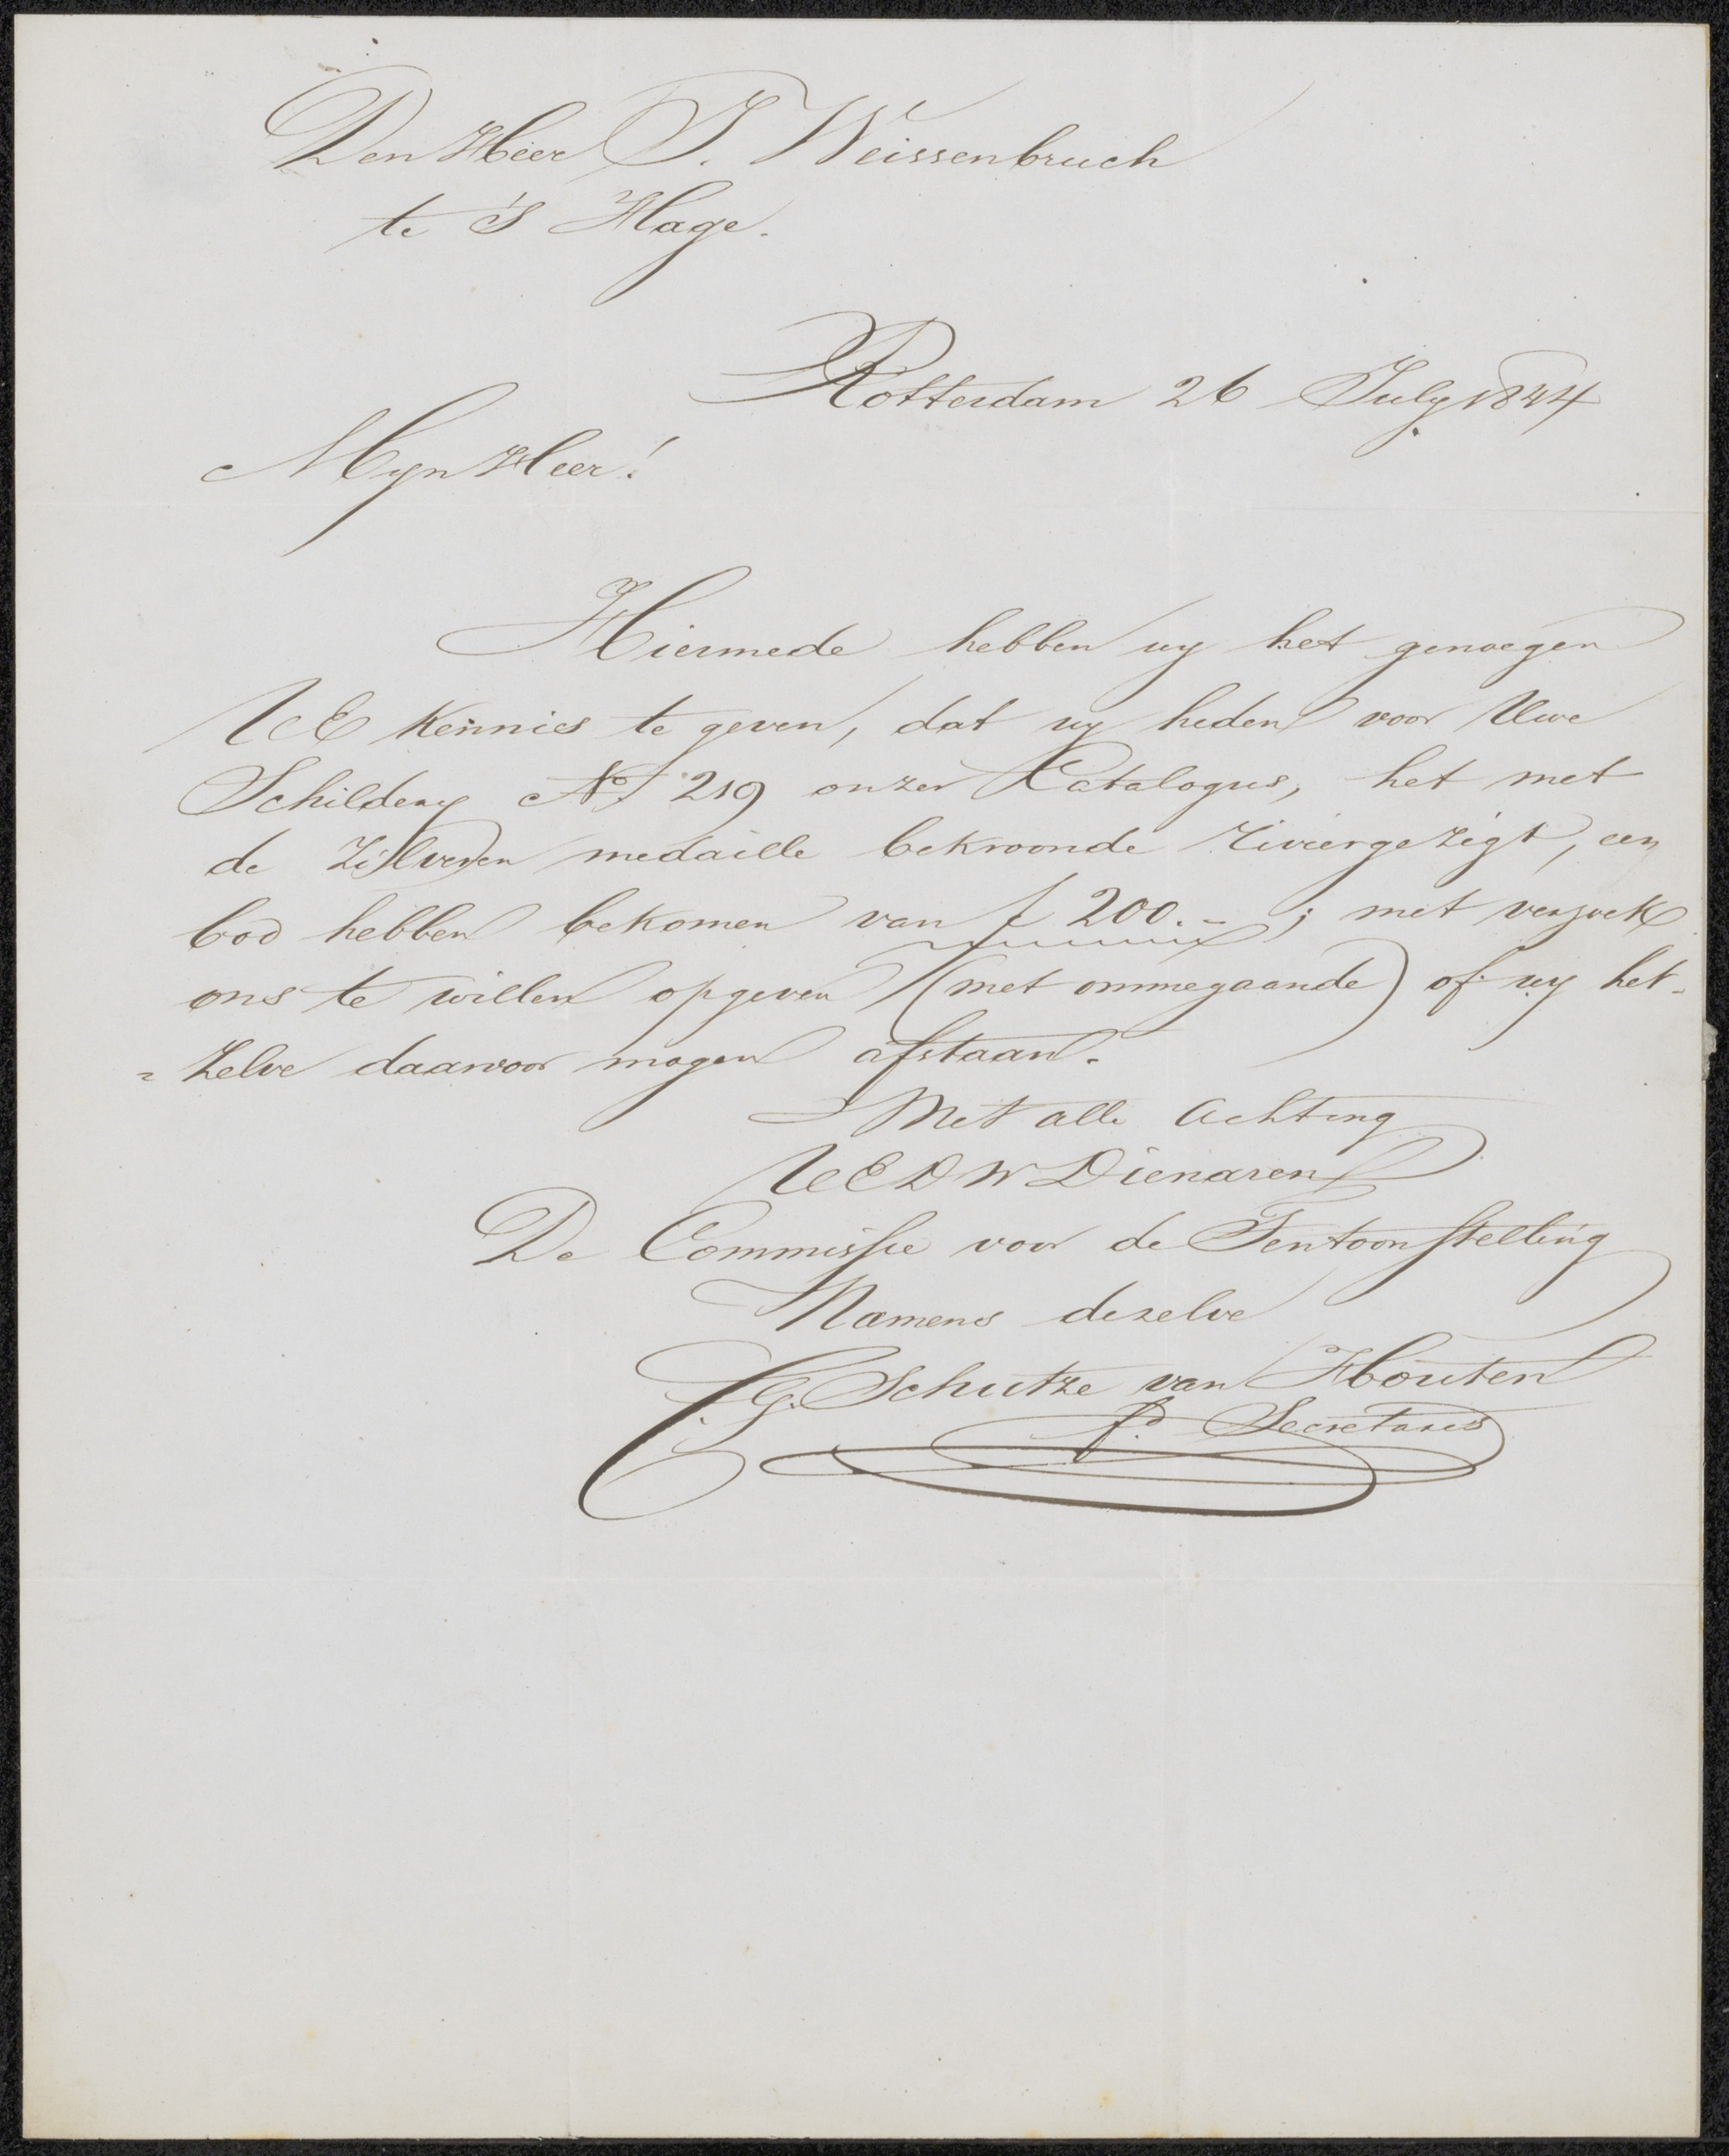 Den Heer J. Weissenbruch
te 's Hage.
Rotterdam 26 July 1844
Myn Heer!
Hiermede hebben wy het genoegen
UE kennis te geven, dat wy heden voor Uwe
Schildery No 219 onzer Catalogus, het met
de Zilveren medaille bekroonde riviergezigt, een
bod hebben bekomen van f 200.-; met verzoek
ons te willen opgeven (met ommegaande) of wy het-
=zelve daarvoor mogen afstaan.
Met alle achting
UEDW Dienaren
De Commissie voor de Tentoonstelling
Namens dezelve
G. Schutze van Houten
Secretaris